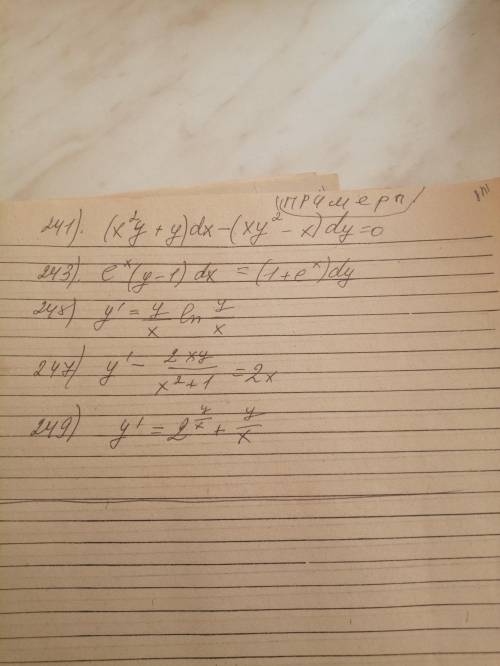 примеры
241). (x²y + y)dx - (xy² - x)dy = 0
243). eˣ(y-1)dx = (1+eˣ)dy
248) y' = y/x ln y/x
247) y' - 2xy/(x²+1) = 2x
249) y' = 2^(y/x) + y/x